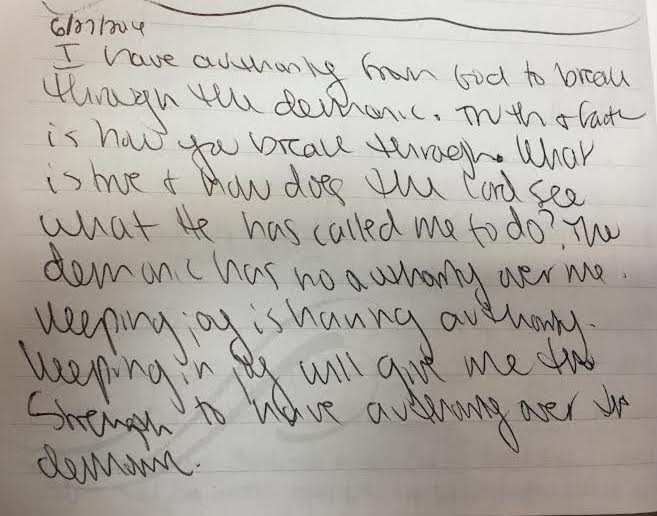 6/27/2014
I have authority from God to break
through the demonic. Truth & faith
is how you break through. What
is true & how does the Lord see
what He has called me to do? The
demonic has no authority over me.
Keeping joy is having authority.
Keeping in joy will give me the
Strength to have authority over the
demonic.